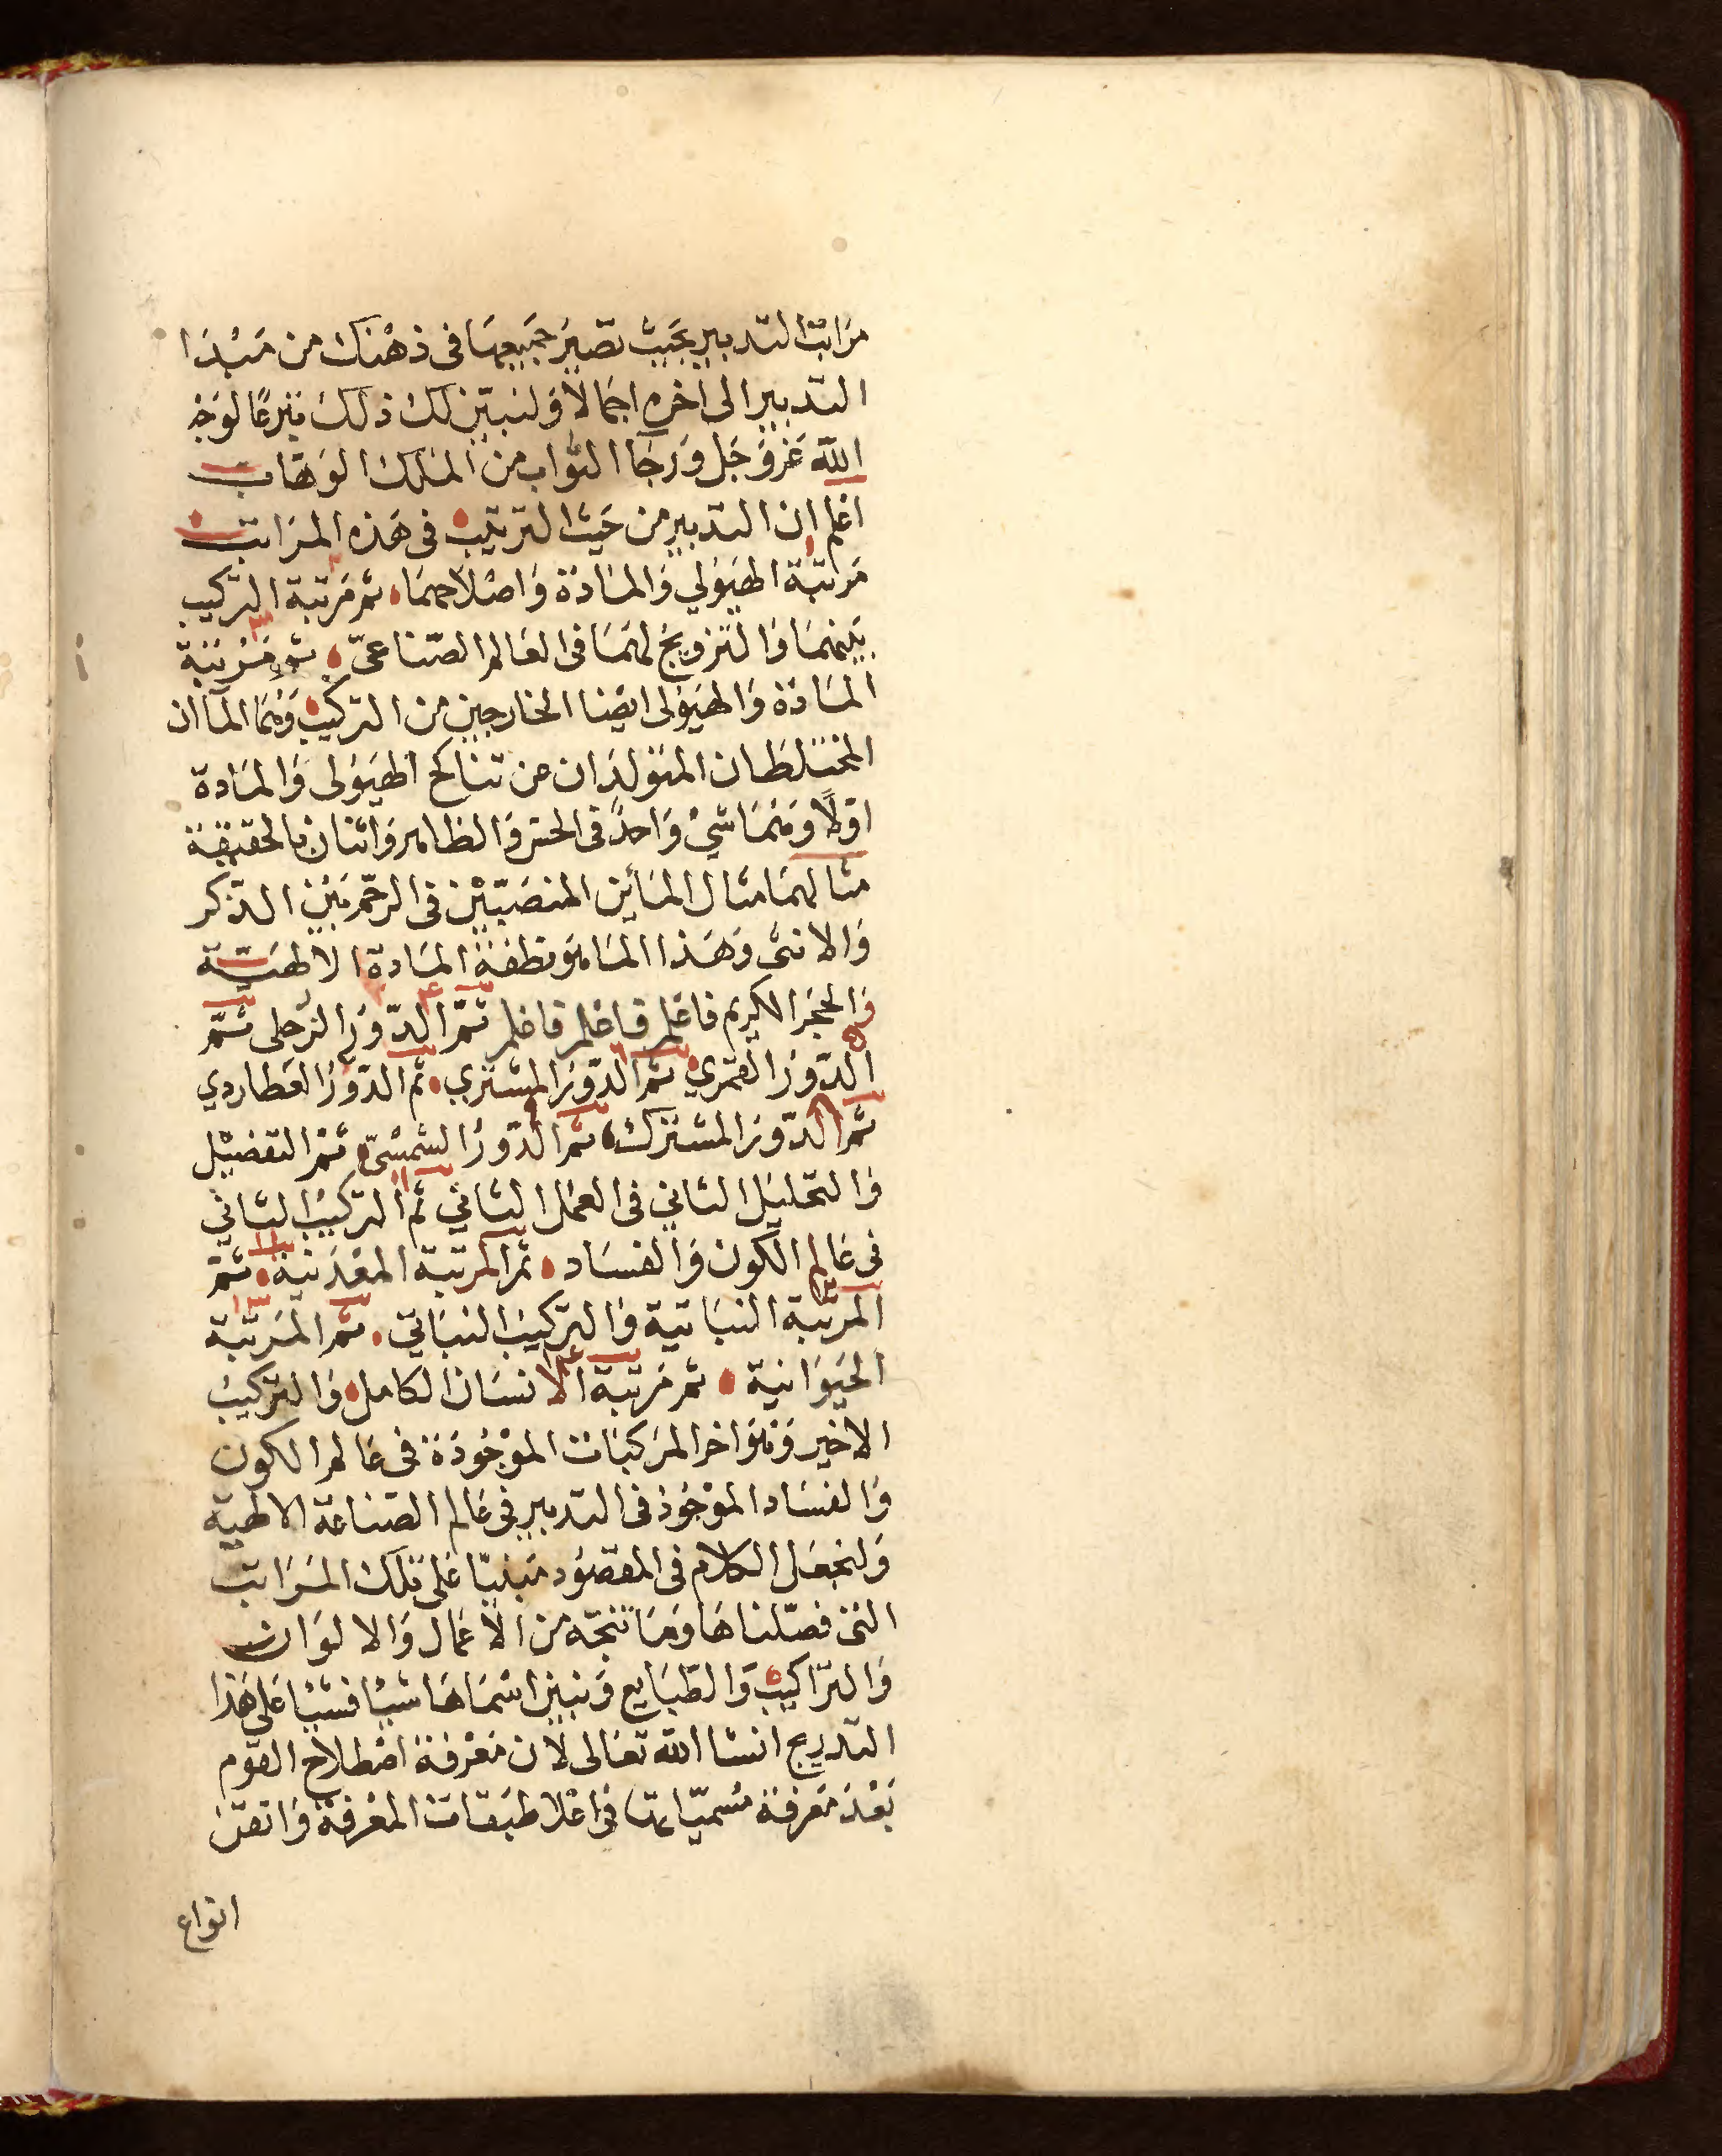 مَراتب التدبير بحَيث تصَير جَميعهَا فى ذهْنك من مَبْدَا
التدبير الى اخره اجمَالاً وَلنبيّن لك ذلك تبرعًا لوَجْه
الله عَز وَجَل وَرجَا الثواب من المَلك الوَهّاب
اعْلم ان التدبير من حَيث الترتيب فى هَذه المرَاتب
١ مَرتبَة الهيَوُلي وَالمَادة وَاصْلاحهمَا ثم مَرتبة ٢ التركيب
بَينهمَا وَالتزويج لهمَا فى العَالم الصّناعىّ ثم ٣ مَرْتبَة
المَادة وَالهيَوُلى ايضا الخارجين من التركيب وَهمَا المآان
المختلطَان المتولدَان من تناكح الهيَوُلى وَالمَادة
اوّلاً وَهمَا شيْ وَاحدً فى الحسّ وَالظاهر وَاثنان بالحقيقة
مثالهمَا مثال المَأين المنصَبّيْن فى الرحّم بَيْن الذكر
وَالانثى وَهَذا المَا هوَ نطفة المَادة الالهيَّة
وَالحجَر الكريم فاعْلم فاعْلم فاعْلم ثمّ ٤ الدّوَر الزحلى ثمّ
٥ الدّوَر القمَري ثم ٦ الدّوَر المشتري ثم ٧ الدّوَر العَطاردي
ثم ٨ الدّوَر المشترك ثم ٩ الدّوَر الشمْسىّ ثم التفصْيل
وَالتحْليل الثاني فى العمَل الثاني ثم ١١ التركيب الثاني
فى عَالم الكَون وَالفسَاد ثم المرتبَة المعْدَنية ١٢ ثم
المرتبَة النبَاتية وَالتركيبَ النبَاتي ثم ١٣ المَرتبة
الحَيوَانية ثم مَرتبة ١٤ الانسَان الكامل وَالتركيب
الاخير وَهوَ اخر المركبَات الموْجُودَة فى عَالم الكون
وَالفسَاد الموْجُود فى التدبير فى عَالم الصّناعَة الالهيّة
وَلنجعَل الكلام فى المقصوُد مَبنيّا عَلى تلك المَرَاتب
التى فصّلناهَا وَمَا تنتجّه من الاعمَال وَالالوَان
وَالتّراكيب وَالطبَايع وَنبيّن اسْمَاهَا شيْا فشيْا عَلى هَذا
التدريج انشا الله تعَالى لان مَعْرفة اصْطلاح القوَم
بَعْدَ مَعرفة مسْميّاتهَا فى اعْلا طبَقات المعْرفة وَاتقن
انواع